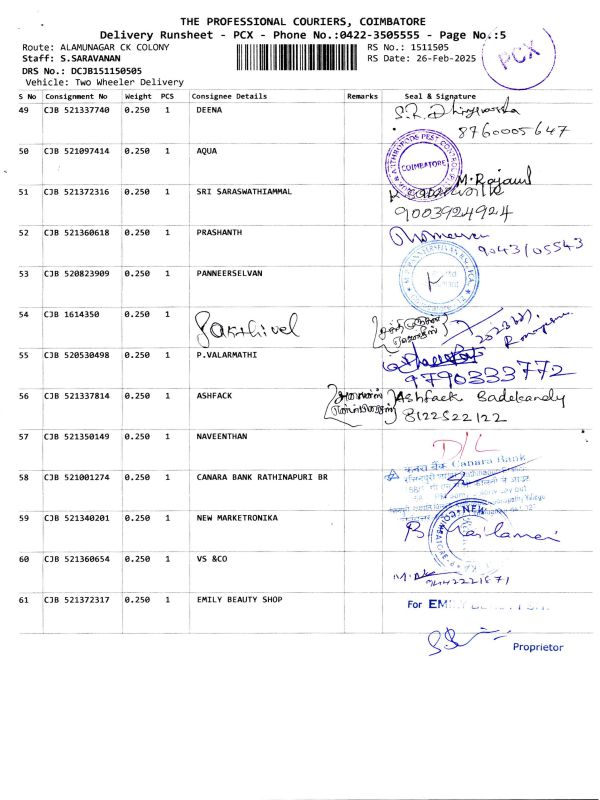 THE PROFESSIONAL COURIERS, COIMBATORE
Delivery Runsheet - PCX - Phone No.:0422-3505555 - Page No.:5
Route: ALAMUNAGAR CK COLONY
RS No.: 1511505
Staff: S.SARAVANAN
RS Date: 26-Feb-2025
PCX
DRS No.: DCJB151150505
Vehicle: Two Wheeler Delivery
S No Consignment No Weight PCS Consignee Details Remarks Seal & Signature
49 CJB 521337740 0.250 1 DEENA
8760005647
50 CJB 521097414 0.250 1 AQUA
COIMBATORE
51 CJB 521372316 0.250 1 SRI SARASWATHIAMMAL
9003924924
52 CJB 521360618 0.250 1 PRASHANTH
9043105543
53 CJB 520823909 0.250 1 PANNEERSELVAN
54 CJB 1614350 Sakthivel
55 CJB 520530498 0.250 1 P.VALARMATHI
9790333772
56 CJB 521337814 0.250 1 ASHFACK Ashfack Badekandy
8122522122
57 CJB 521350149 0.250 1 NAVEENTHAN
D/L
58 CJB 521001274 0.250 1 CANARA BANK RATHINAPURI BR
केनरा बैंक Canara Bank
59 CJB 521340201 0.250 1 NEW MARKETRONIKA
NEW
60 CJB 521360654 0.250 1 VS &CO
61 CJB 521372317 0.250 1 EMILY BEAUTY SHOP
For EMILY
Proprietor